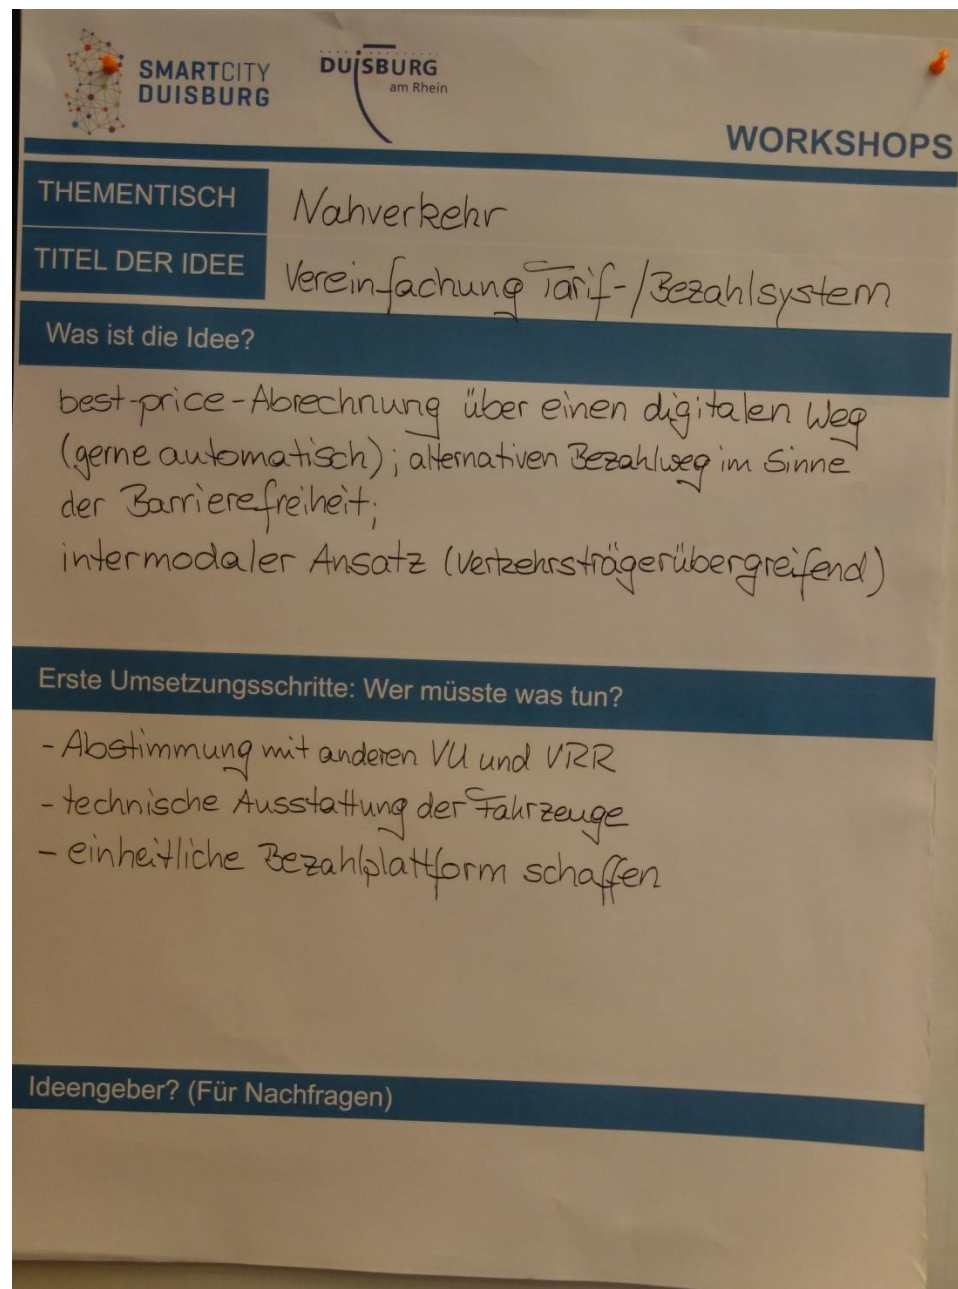 SMARTCITY
DUISBURG
DUISBURG
am Rhein
WORKSHOPS
THEMENTISCH
Nahverkehr
TITEL DER IDEE
Vereinfachung Tarif-/Bezahlsystem
Was ist die Idee?
best-price-Abrechnung über einen digitalen Weg
(gerne automatisch); alternativen Bezahlweg im Sinne
der Barrierefreiheit;
intermodaler Ansatz (Verkehrsträgerübergreifend)
Erste Umsetzungsschritte: Wer müsste was tun?
- Abstimmung mit anderen VU und VRR
- technische Ausstattung der Fahrzeuge
- einheitliche Bezahlplattform schaffen
Ideengeber? (Für Nachfragen)